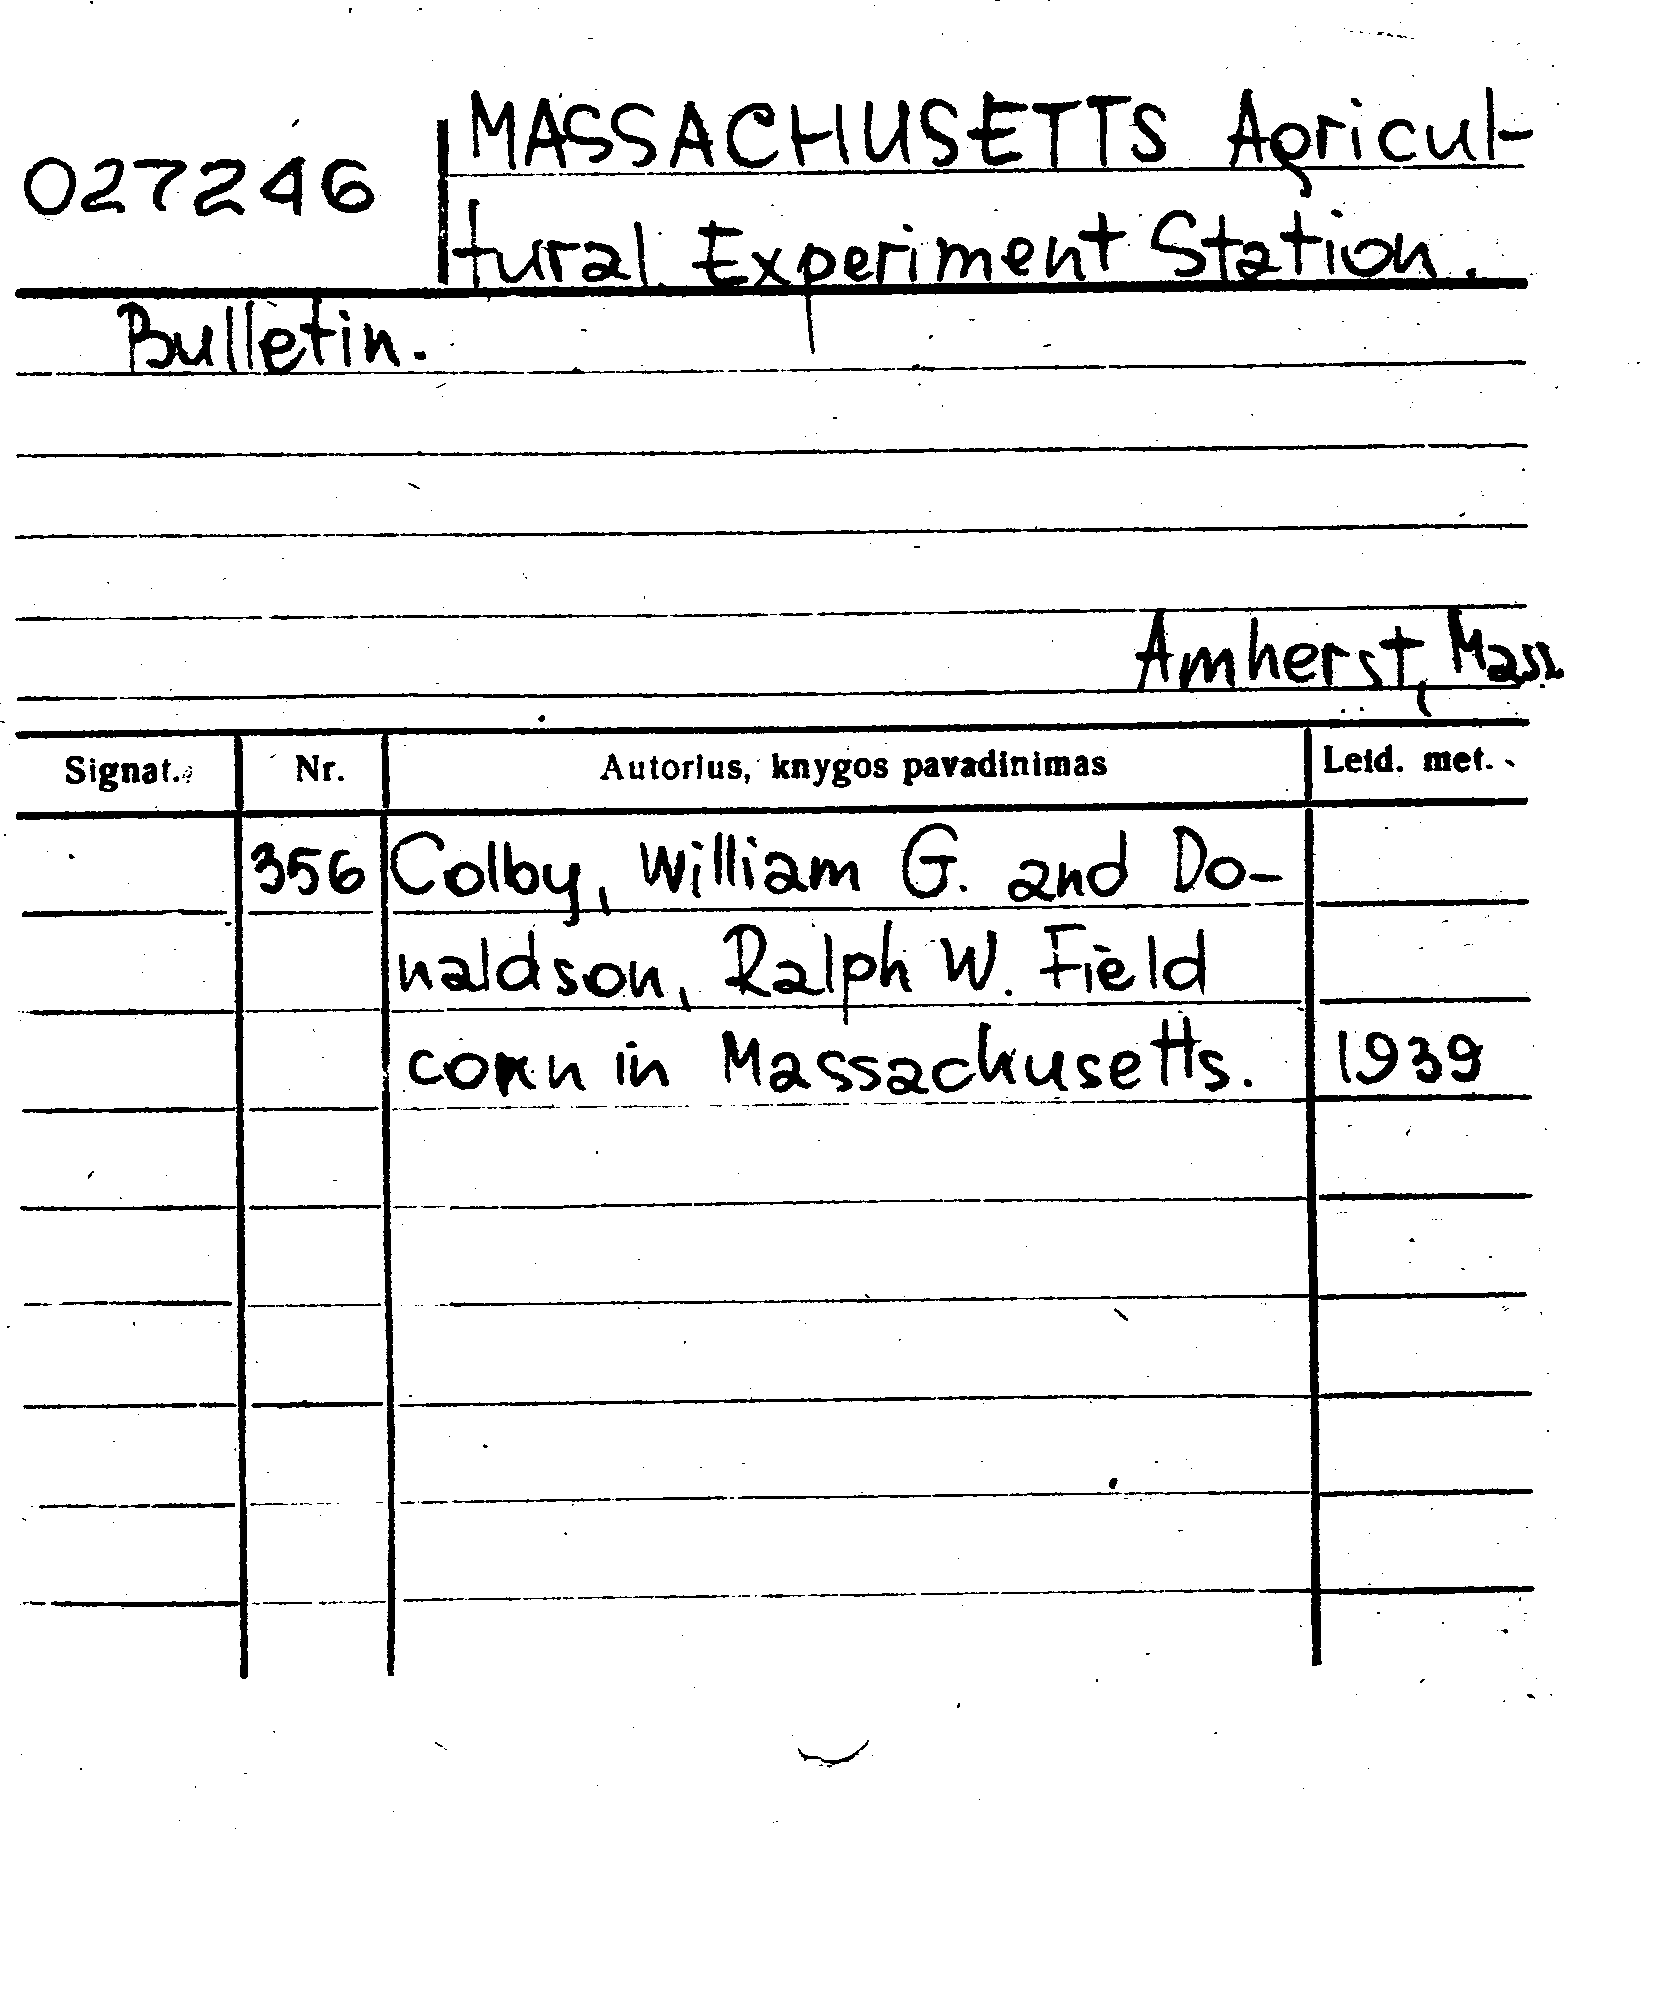 MASSACHUSETTS Agricul-
027246
tural Experiment Station.
Bulletin.
Amherst, Mass.
Signat. Nr. Autorius, knygos pavadinimas Leid. met.
356 Colby, William G. and Do-
naldson, Ralph W. Field
corn in Massachusetts. 1939